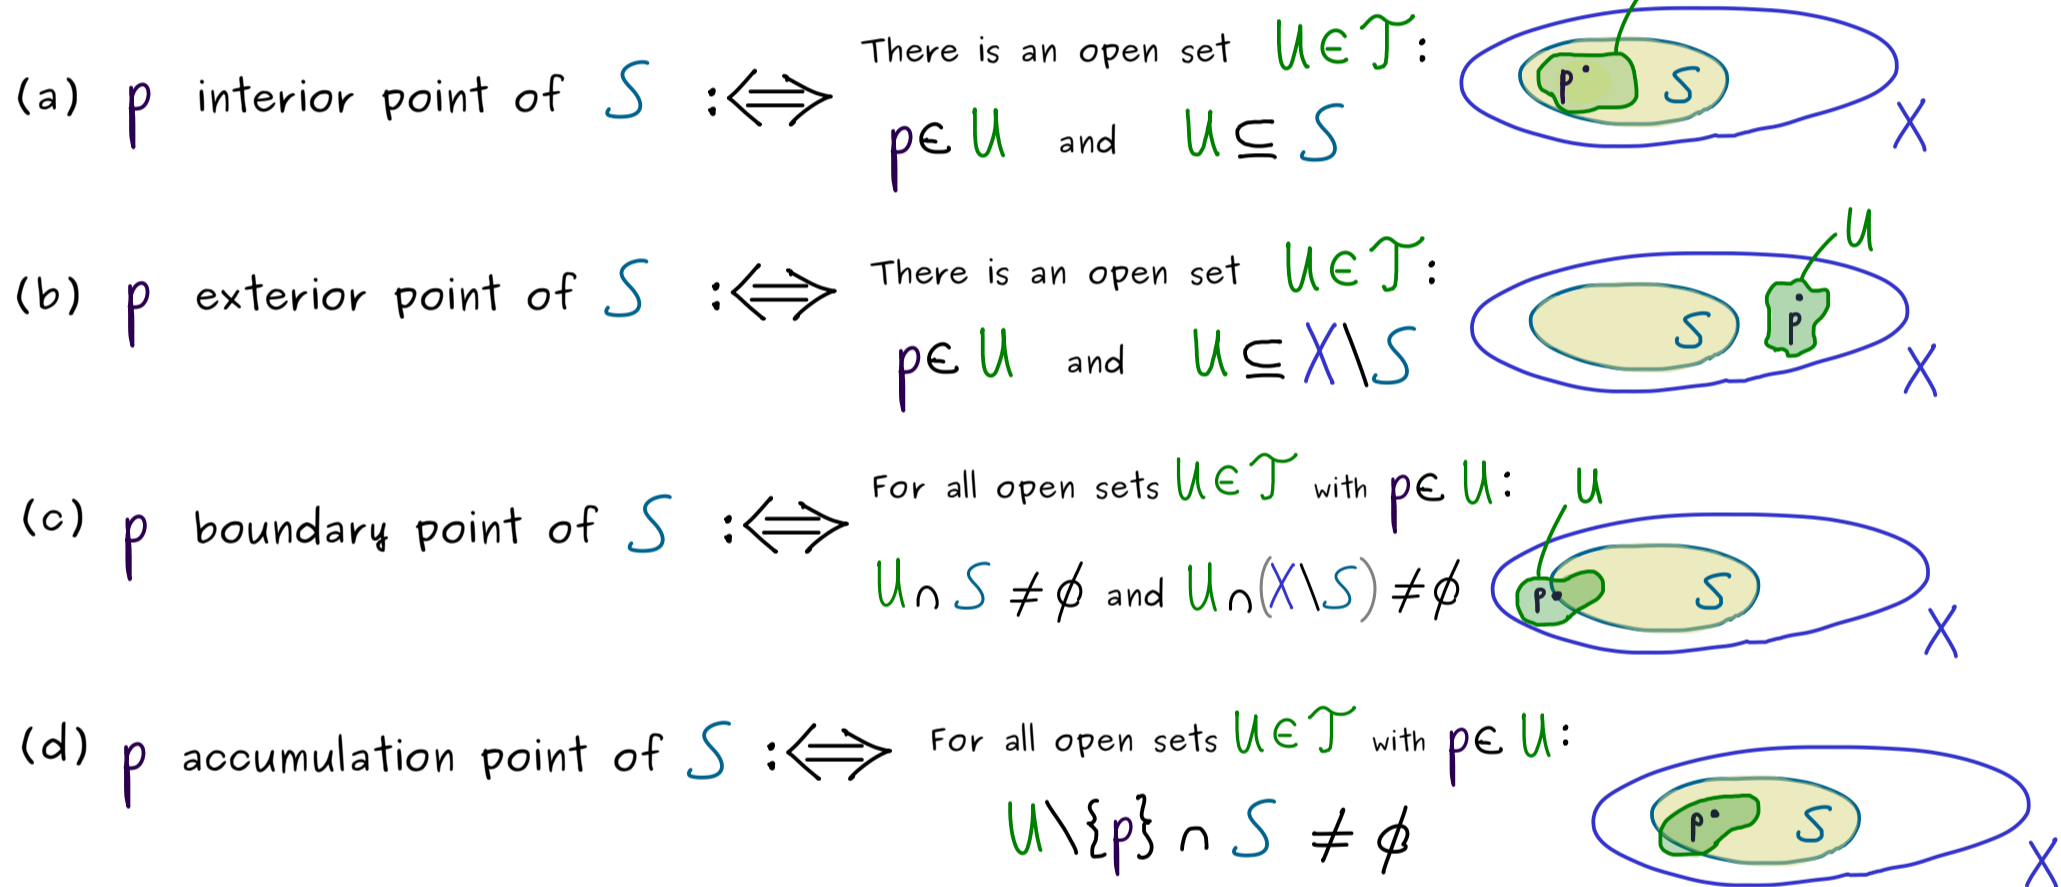 (a) p interior point of S :⟺ There is an open set U∈𝒯:
p∈U and U⊆S
p S
X
(b) p exterior point of S :⟺ There is an open set U∈𝒯:
p∈U and U⊆X\S
U
S p
X
(c) p boundary point of S :⟺ For all open sets U∈𝒯 with p∈U:
U∩S≠∅ and U∩(X\S)≠∅
U
p S
X
(d) p accumulation point of S :⟺ For all open sets U∈𝒯 with p∈U:
U\{p}∩S≠∅
p S
X